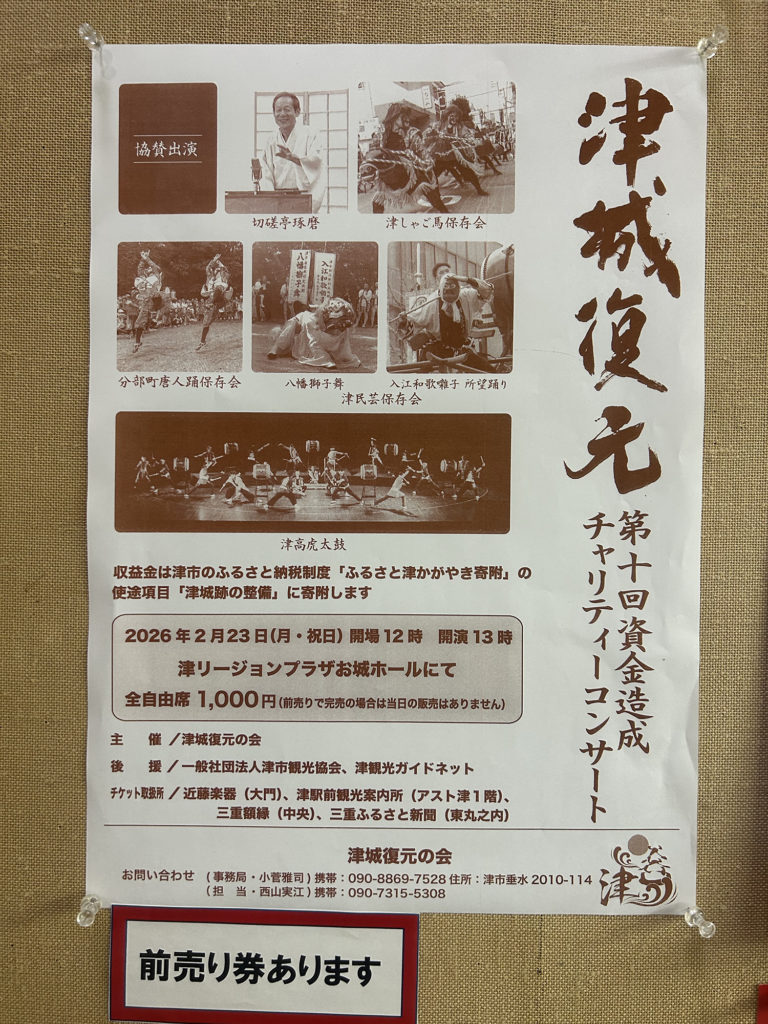 津城復元
第十回資金造成
チャリティーコンサート
協賛出演
切磋亭琢磨
津しゃご馬保存会
八幡獅子舞
入江和歌囃子
分部町唐人踊保存会
八幡獅子舞
入江和歌囃子 所望踊り
津民芸保存会
津高虎太鼓
収益金は津市のふるさと納税制度「ふるさと津かがやき寄附」の
使途項目「津城跡の整備」に寄附します
2026年2月23日(月・祝日) 開場12時 開演13時
津リージョンプラザお城ホールにて
全自由席 1,000円(前売りで完売の場合は当日の販売はありません)
主 催 /津城復元の会
後 援 /一般社団法人津市観光協会、津観光ガイドネット
チケット取扱所 /近藤楽器(大門)、津駅前観光案内所(アスト津1階)、
三重額縁(中央)、三重ふるさと新聞(東丸之内)
津城復元の会
お問い合わせ (事務局・小菅雅司) 携帯:090-8869-7528 住所:津市垂水2010-114
(担 当・西山実江) 携帯:090-7315-5308
津
前売り券あります